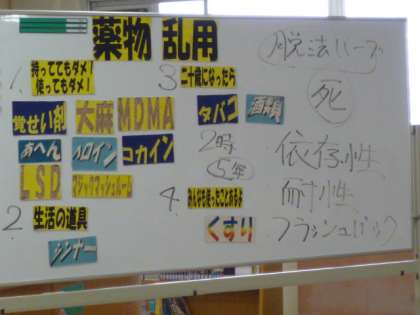 薬物乱用
1. 持っててもダメ！
使ってもダメ！
覚せい剤 大麻 MDMA
あへん ヘロイン コカイン
LSD マジックマッシュルーム
2. 生活の道具
シンナー
3. 二十歳になったら
タバコ 酒
2時
5年
4. みんなも使ったことあるよ
くすり
脱法ハーブ
死
依存性
耐性
フラッシュバック